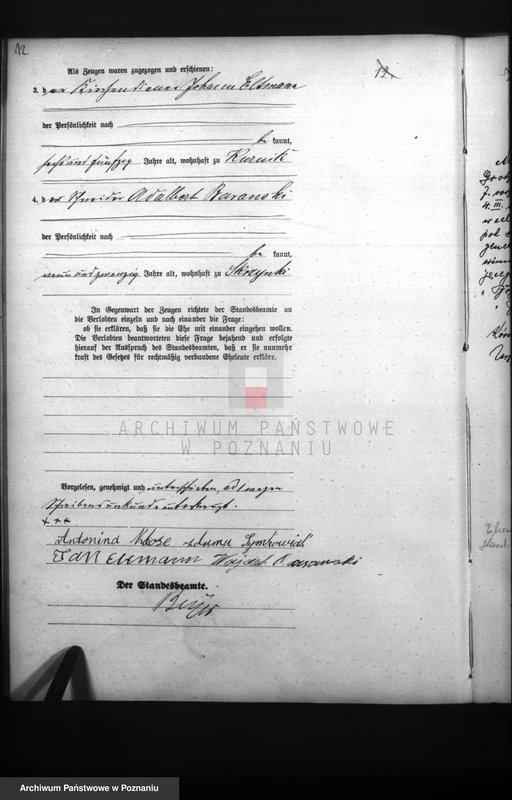 12
12
Als Zeugen waren zugezogen und erschienen:
3. der Kirchendiener Johann Eltmann
der Persönlichkeit nach
be kannt,
sechs und fünfzig Jahre alt, wohnhaft zu Kurnik
4. der Schneider Adalbert Baranski
der Persönlichkeit nach
be kannt,
neun und zwanzig Jahre alt, wohnhaft zu Skrzynki
In Gegenwart der Zeugen richtete der Standesbeamte an
die Verlobten einzeln und nach einander die Frage:
ob sie erklären, daß sie die Ehe mit einander eingehen wollen.
Die Verlobten beantworteten diese Frage bejahend und erfolgte
hierauf der Ausspruch des Standesbeamten, daß er sie nunmehr
kraft des Gesetzes für rechtmäßig verbundene Eheleute erkläre.
ARCHIWUM PAŃSTWOWE
W POZNANIU
Vorgelesen, genehmigt und unterschrieben, wegen
Schreibensunkunde unterkreuzt.
+++
Antonina
Jan Eltmann Wojciech Baranski
Der Standesbeamte.
Archiwum Państwowe w Poznaniu